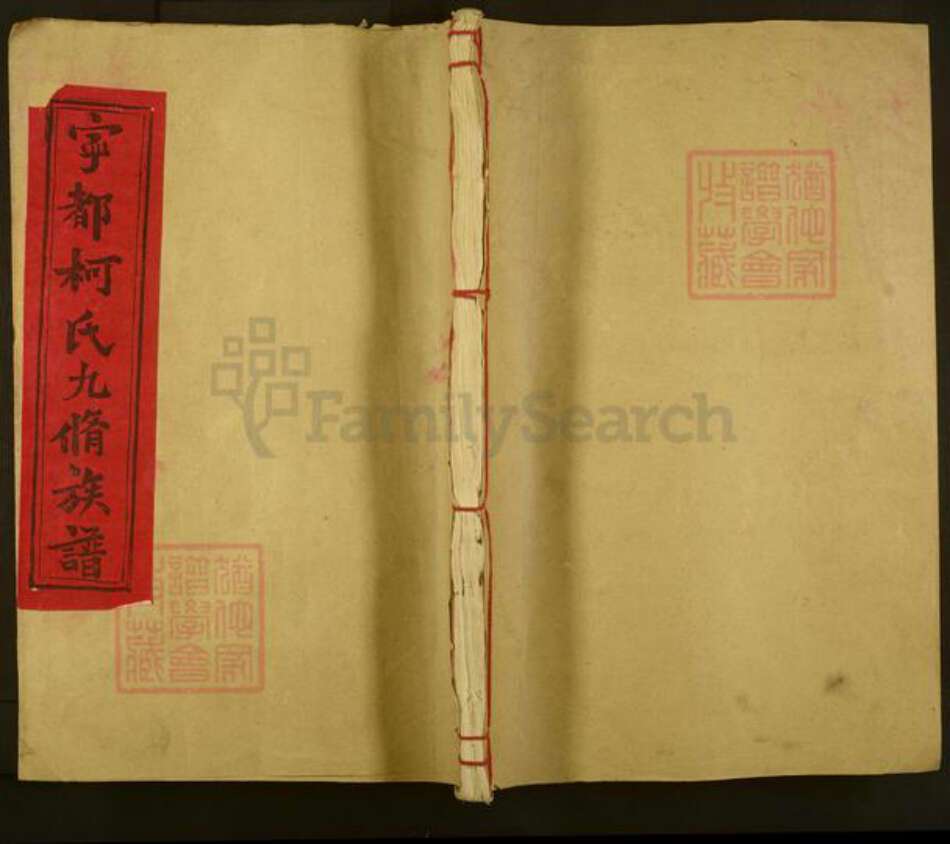 寕都柯氏九脩族譜
猶他家
譜學會
收藏
猶他家
譜學會
藏
FamilySearch